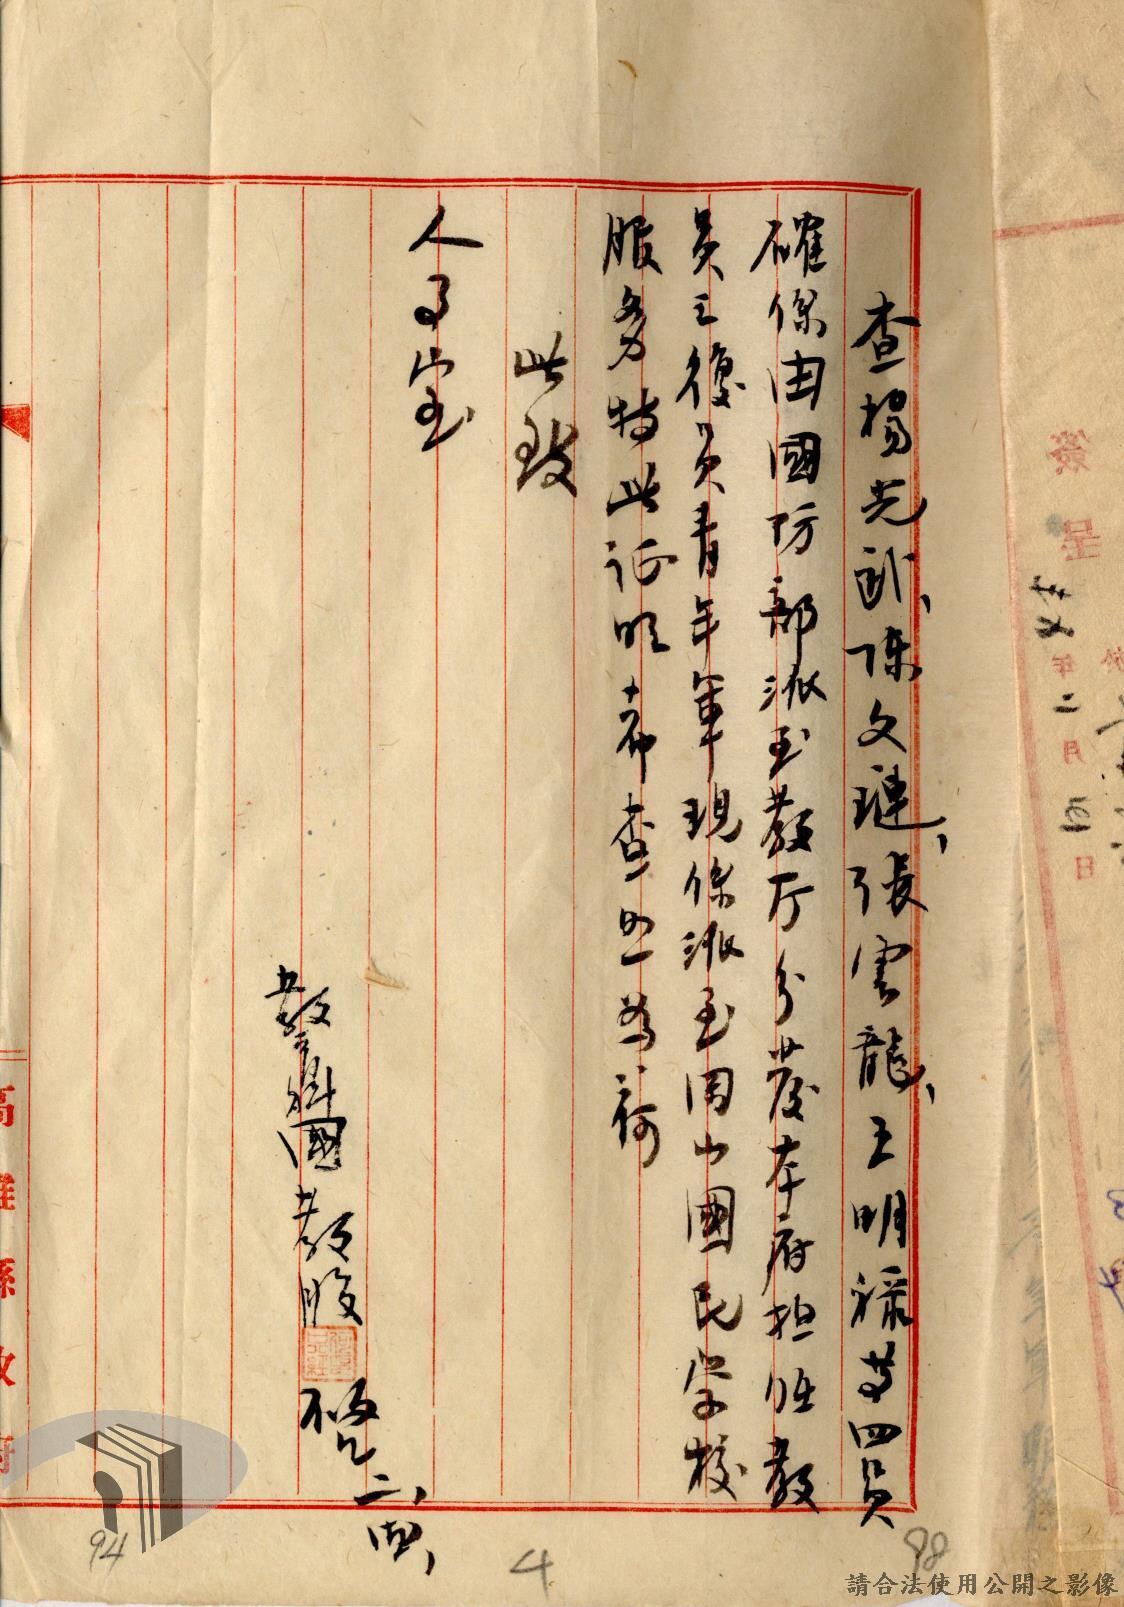 查楊光武、陳文璉、張雲龍、王明祿等四員
確係由國防部派至教厅分發本府担任教
員之復員青年軍現係派至岡山國民学校
服务特此证明希查照為荷
此致
人事室
教育科國教股
啓
二、四、
高雄縣政府
簽呈
年二月四日
94
4
98
請合法使用公開之影像